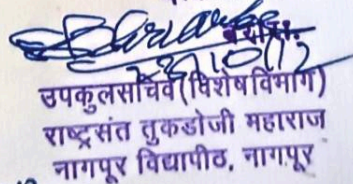 उपकुलसचिव (विशेष विभाग)
राष्ट्रसंत तुकडोजी महाराज
नागपूर विद्यापीठ, नागपूर